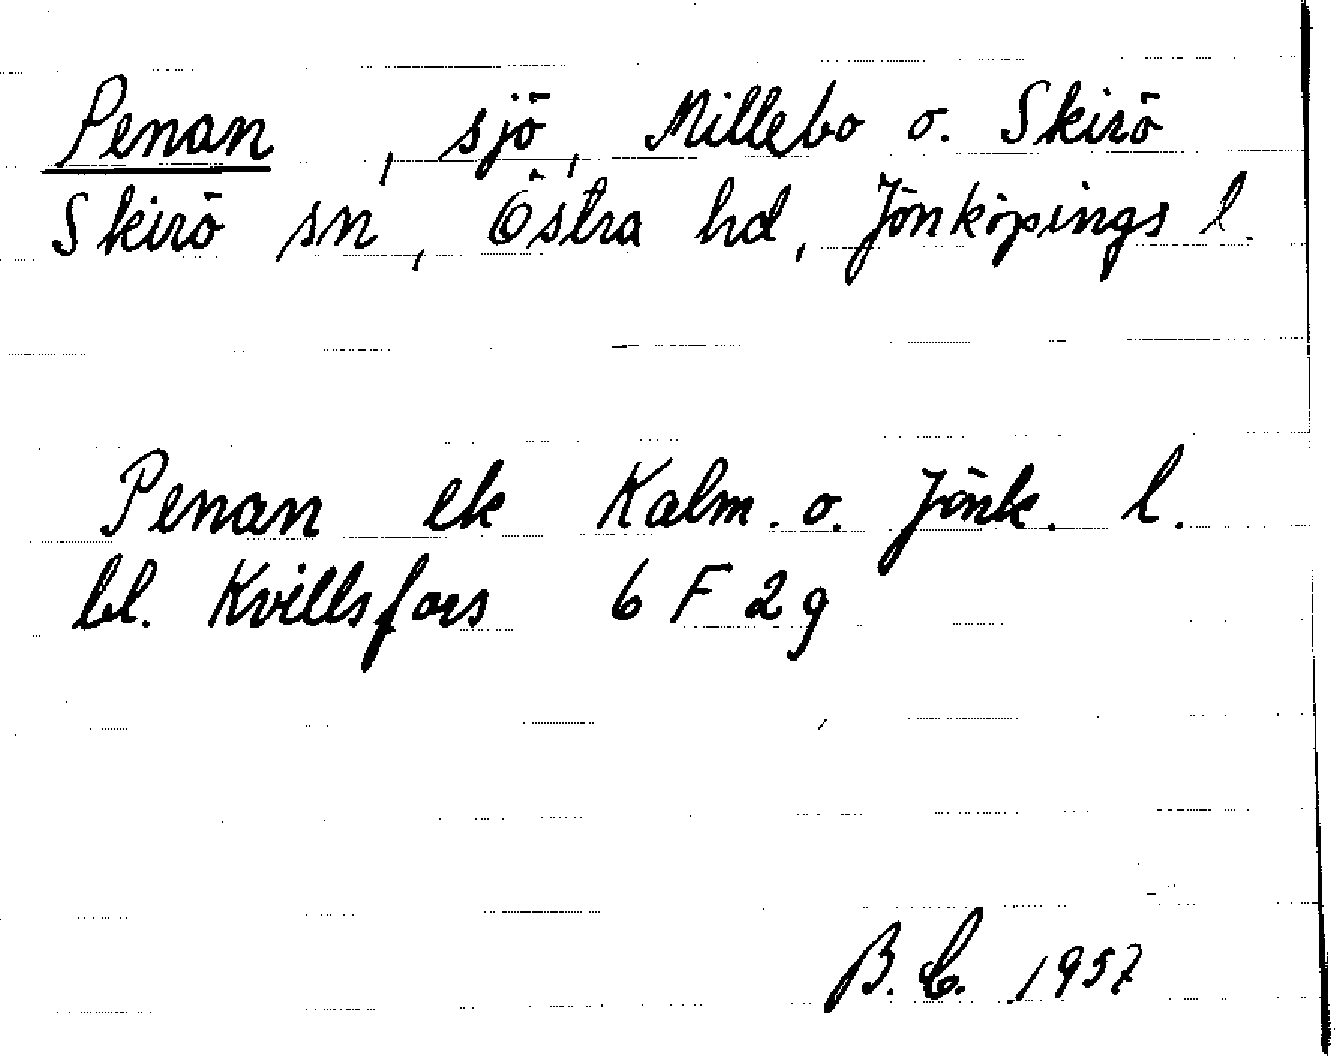 Penan , sjö, Millebo o. Skirö
Skirö sn, Östra hd, Jönköpings l.
Penan ek Kalm. o. Jönk. l.
bl. Kvillsfors 6 F 2g
B. E. 1957